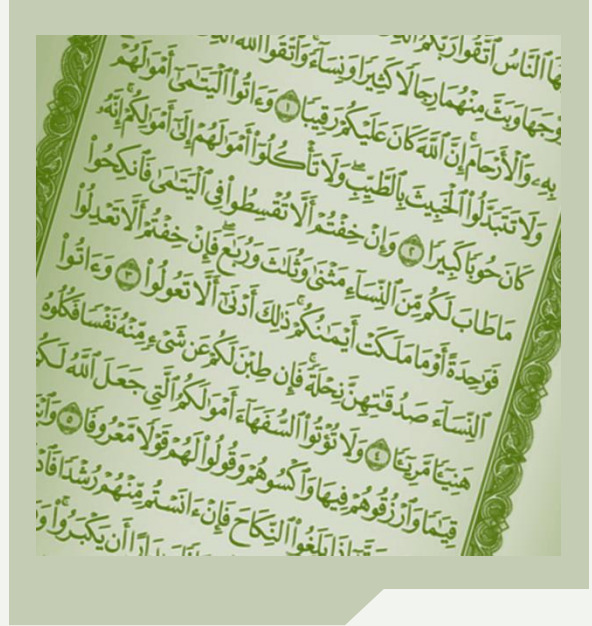 ٱلنَّاسُ ٱتَّقُوا۟ رَبَّكُمُ
وَبَثَّ مِنْهُمَا رِجَالًا كَثِيرًا وَنِسَآءً ۚ وَٱتَّقُوا۟ ٱللَّهَ
بِهِۦ وَٱلْأَرْحَامَ ۚ إِنَّ ٱللَّهَ كَانَ عَلَيْكُمْ رَقِيبًا ١ وَءَاتُوا۟ ٱلْيَتَٰمَىٰٓ أَمْوَٰلَهُمْ
وَلَا تَتَبَدَّلُوا۟ ٱلْخَبِيثَ بِٱلطَّيِّبِ ۖ وَلَا تَأْكُلُوٓا۟ أَمْوَٰلَهُمْ إِلَىٰٓ أَمْوَٰلِكُمْ ۚ إِنَّهُۥ
كَانَ حُوبًا كَبِيرًا ٢ وَإِنْ خِفْتُمْ أَلَّا تُقْسِطُوا۟ فِى ٱلْيَتَٰمَىٰ فَٱنكِحُوا۟
مَا طَابَ لَكُم مِّنَ ٱلنِّسَآءِ مَثْنَىٰ وَثُلَٰثَ وَرُبَٰعَ ۖ فَإِنْ خِفْتُمْ أَلَّا تَعْدِلُوا۟
فَوَٰحِدَةً أَوْ مَا مَلَكَتْ أَيْمَٰنُكُمْ ۚ ذَٰلِكَ أَدْنَىٰٓ أَلَّا تَعُولُوا۟ ٣ وَءَاتُوا۟
ٱلنِّسَآءَ صَدُقَٰتِهِنَّ نِحْلَةً ۚ فَإِن طِبْنَ لَكُمْ عَن شَىْءٍ مِّنْهُ نَفْسًا فَكُلُوهُ
هَنِيٓـًٔا مَّرِيٓـًٔا ٤ وَلَا تُؤْتُوا۟ ٱلسُّفَهَآءَ أَمْوَٰلَكُمُ ٱلَّتِى جَعَلَ ٱللَّهُ
قِيَٰمًا وَٱرْزُقُوهُمْ فِيهَا وَٱكْسُوهُمْ وَقُولُوا۟ لَهُمْ قَوْلًا مَّعْرُوفًا ٥
بَلَغُوا۟ ٱلنِّكَاحَ فَإِنْ ءَانَسْتُم مِّنْهُمْ رُشْدًا
أَن يَكْبَرُوا۟ ۚ